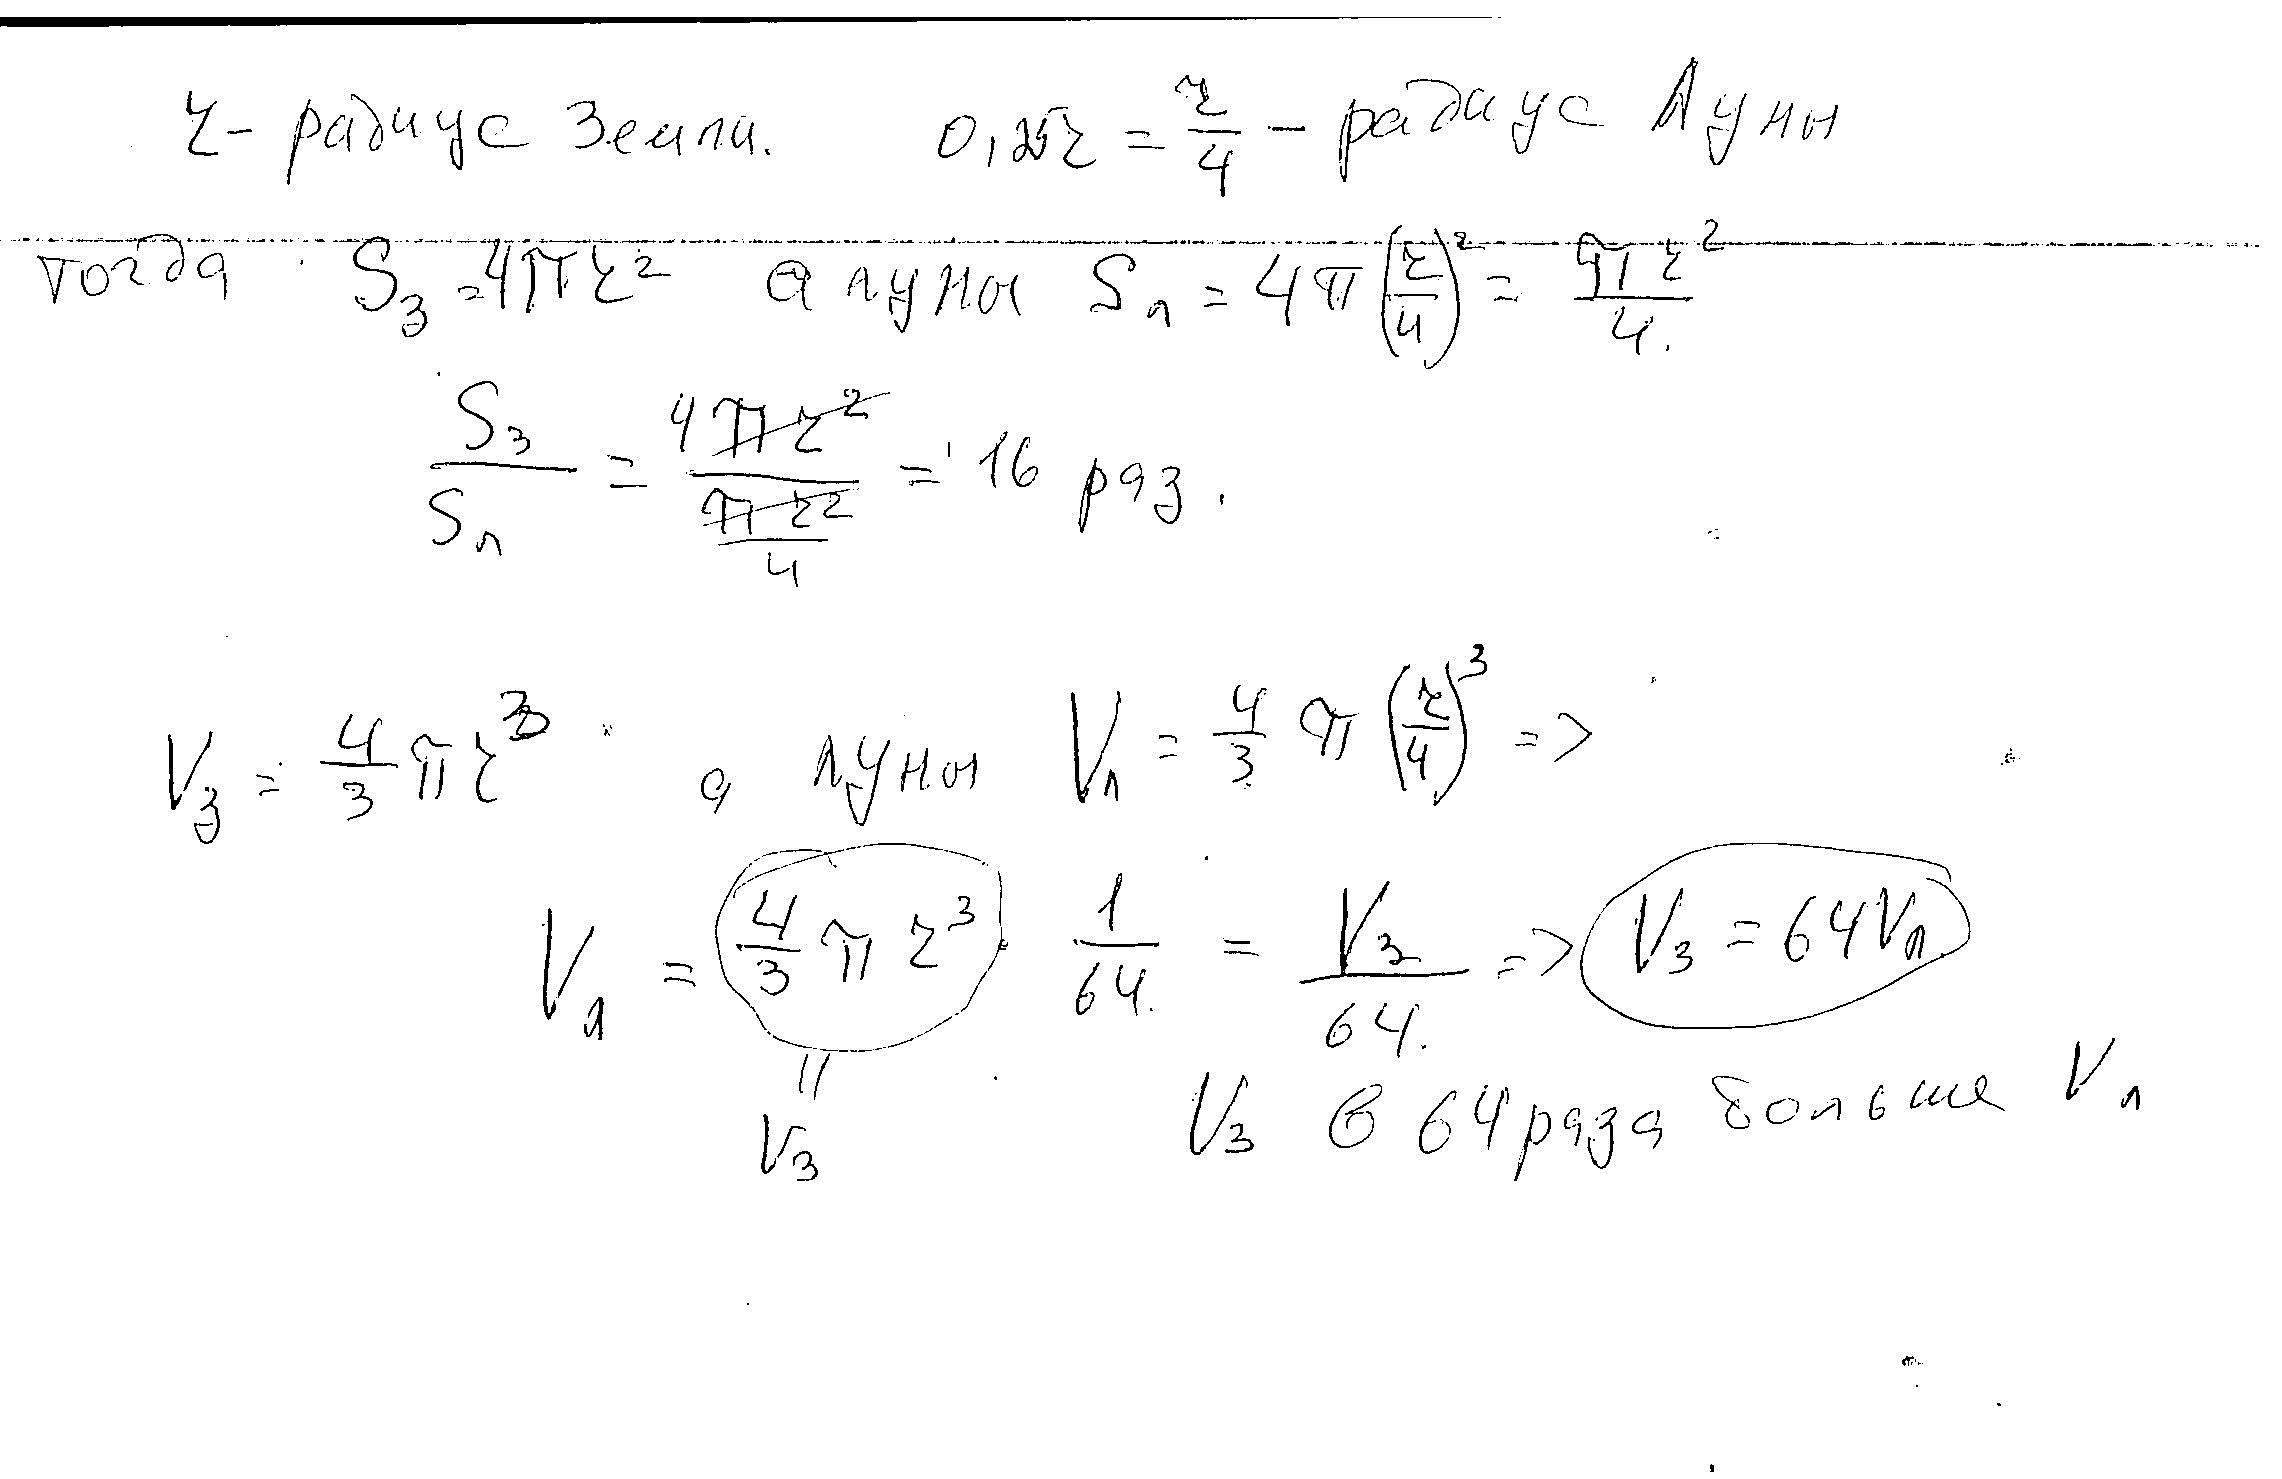 r - радиус Земли. 0,25r = r/4 - радиус Луны
тогда S₃ = 4πr² а луны Sл = 4π(r/4)² = πr²/4.
S₃/Sл = 4πr²/(πr²/4) = 16 раз.
V₃ = 4/3 πr³ а луны Vл = 4/3 π (r/4)³ =>
Vл = 4/3 πr³ · 1/64. = V₃/64. => V₃ = 64Vл
=
V₃ V₃ в 64 раза больше Vл